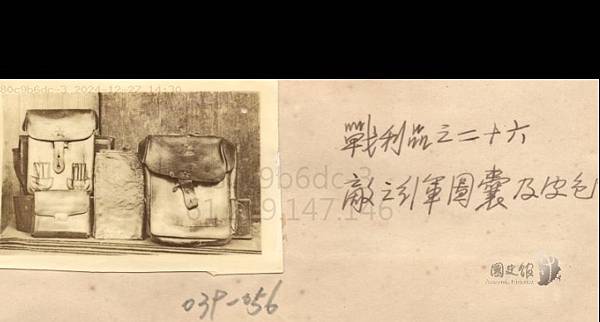 80c9b6dc-3 2024-12-27 14:30
戰利品之二十六
敵之行軍圖囊及皮包
039-056
國史館
Academia Historica